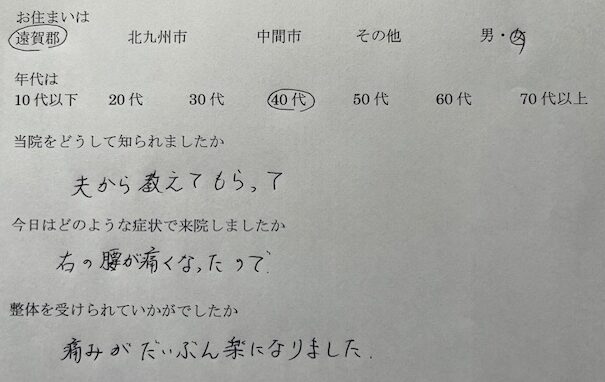 お住まいは
遠賀郡 北九州市 中間市 その他 男・女
年代は
10代以下 20代 30代 40代 50代 60代 70代以上
当院をどうして知られましたか
夫から教えてもらって
今日はどのような症状で来院しましたか
右の腰が痛くなったので
整体を受けられていかがでしたか
痛みがだいぶん楽になりました.